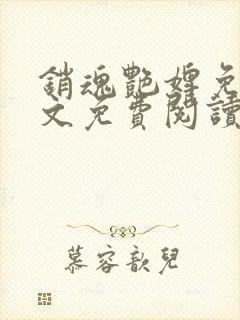 銷魂艷婢免
文免費閱讀
慕容歆兒